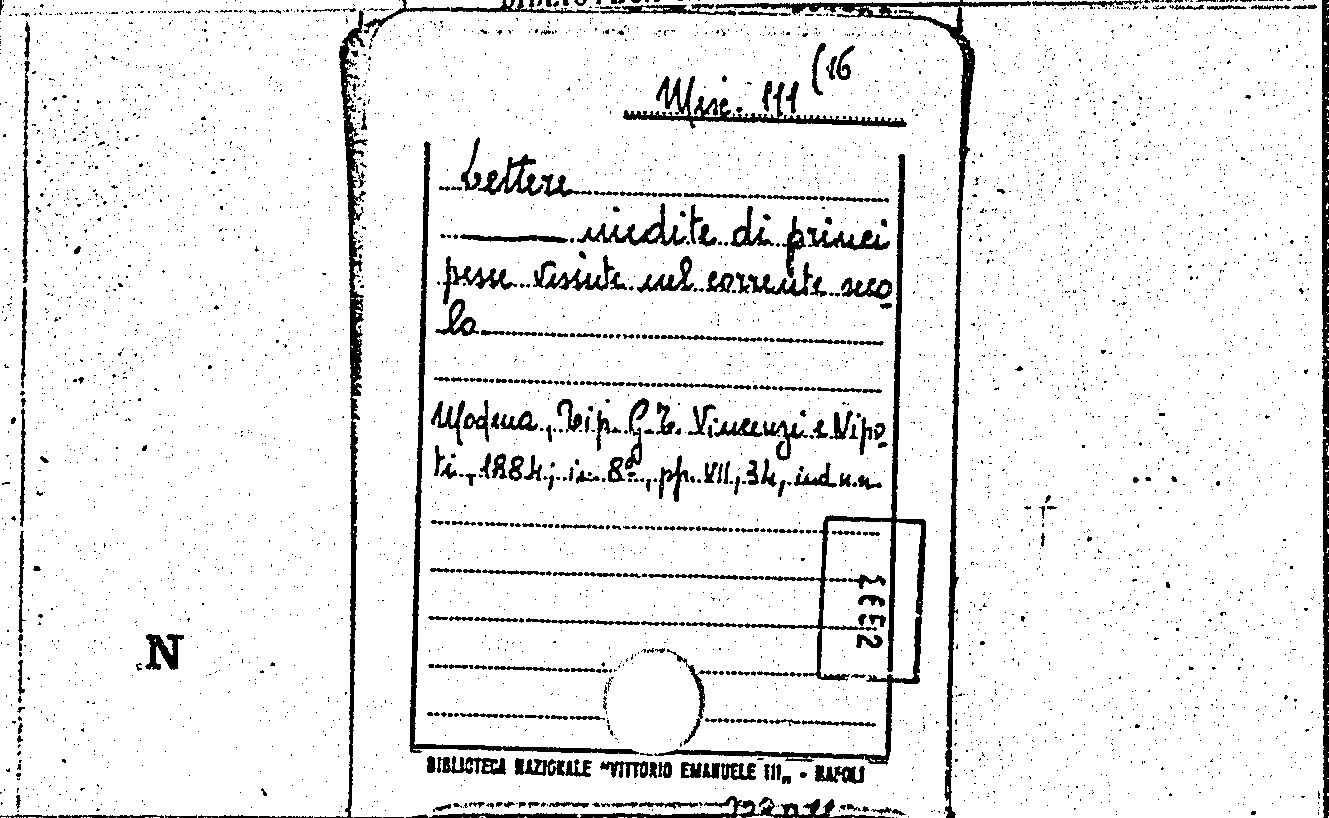 Misc. 111 (16
Lettere
inedite di princi
pesse vissute nel corrente seco
lo
Modena, Tip. G. T. Vincenzi e Nipo
ti, 1884; in 8º, pp. VII, 34, ind n.n.
N
BIBLIOTECA NAZIONALE "VITTORIO EMANUELE III„ - NAPOLI